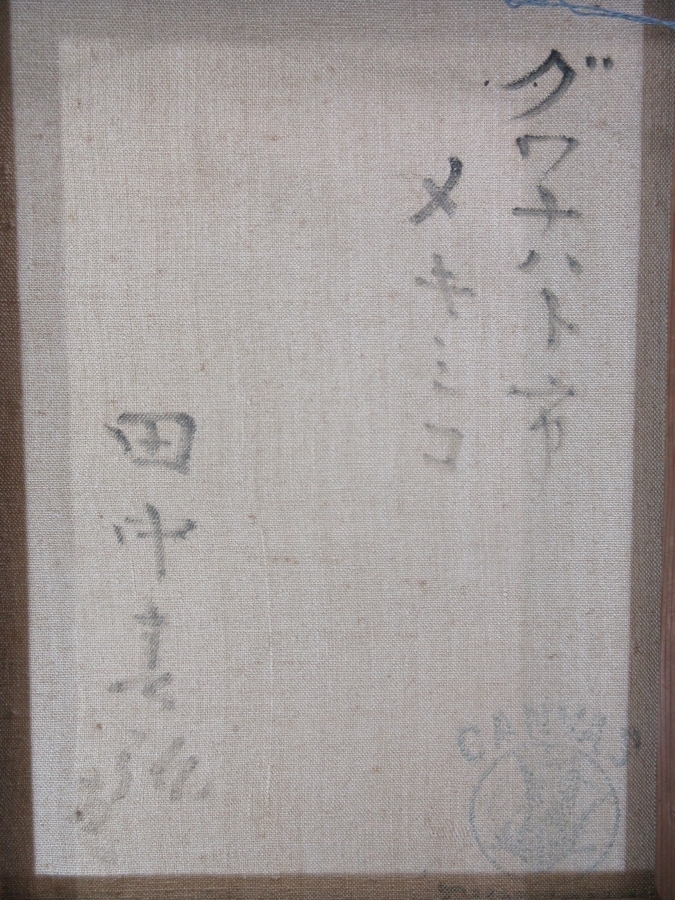 グワナハト市
メキシコ
田中
CANVAS